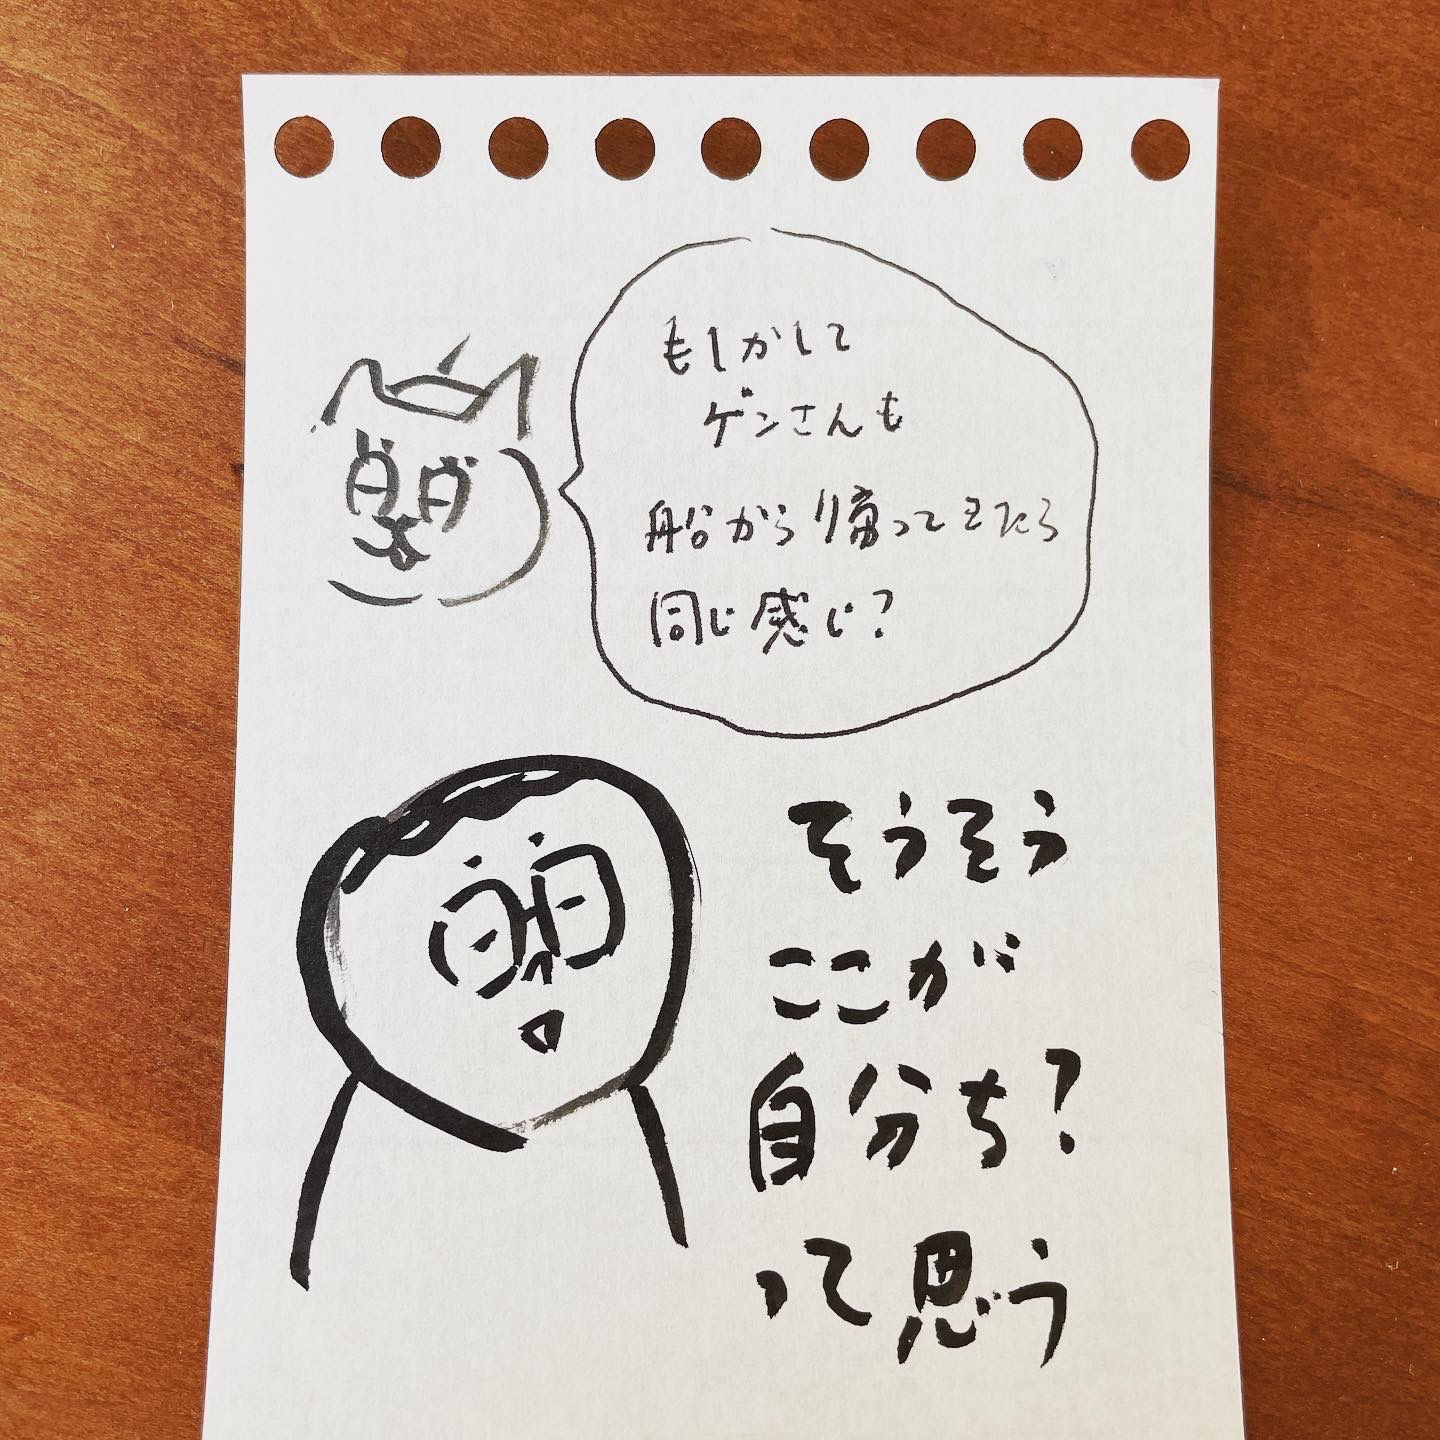 もしかして
ゲンさんも
船から帰ってきたら
同じ感じ？
そうそう
ここが
自分ち？
って思う